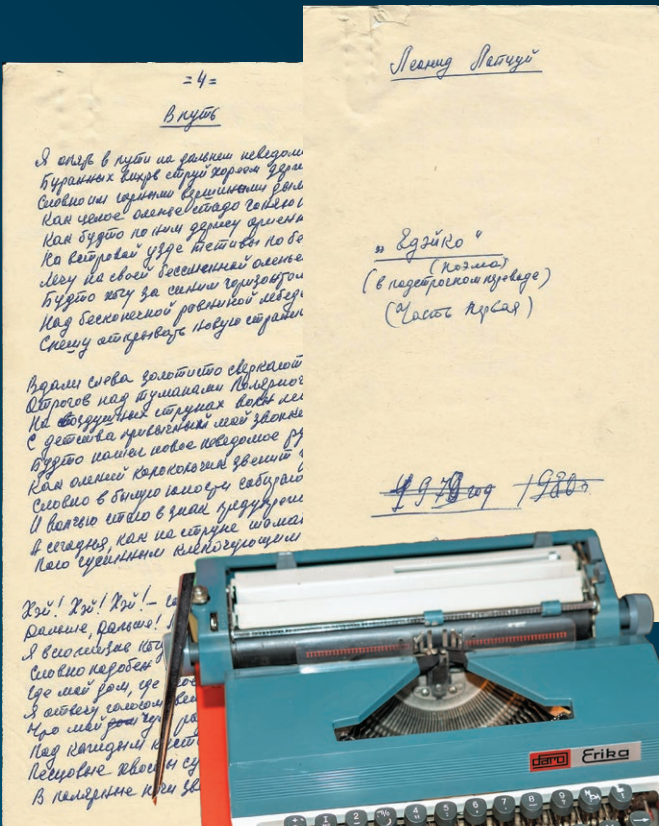 =4=
В путь
Я опять в пути на дальнем неведом
Буранных вихрь струй хореем держ
Словно им горными вершинами дым
Как целое оленье стадо гоняю
Как будто по ним держу
На ветровой узде тетивы по бе
Лечу на своей бессменной оленье
Будто хочу за синим горизонтом
Над бесконечной равниной лебед
Спешу открывать новую страни
Вдали слева золотисто сверкают
Отрогов над туманами Полярног
На воздушных струнах
С детства привычный мой звонк
Будто нашел новое неведомое
Как олений колокольчик звенит
Словно в былую юность собираю
И волчью стаю в знак предупрежд
А сегодня, как на струне
Хэй! Хэй! Хэй! –
Дальше, дальше!
Я всю жизнь
Словно подобен
Где мой дом, где
Я отвечу голосом
Про мой дом
Под каждым куст
Песцовые хвосты су
В полярные ночи зв
Леонид Лапцуй
„Едэйко"
(поэма)
(в подстрочном переводе)
(Часть первая)
1979 год 1980г
daro Erika